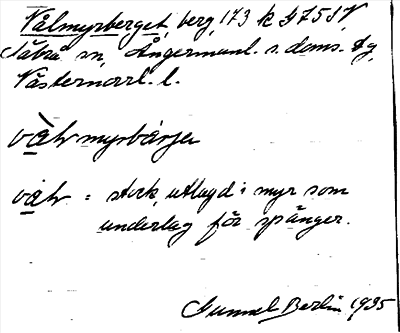 Valmyrberget, berg, 173 k G 75 SV
Säbrå sn, Ångermanl. s. doms. dg,
Västernorrl. l.
myrbärje
= stock, utlagd i myr som
underlag för spänger.
Gunnel Berlin 1935